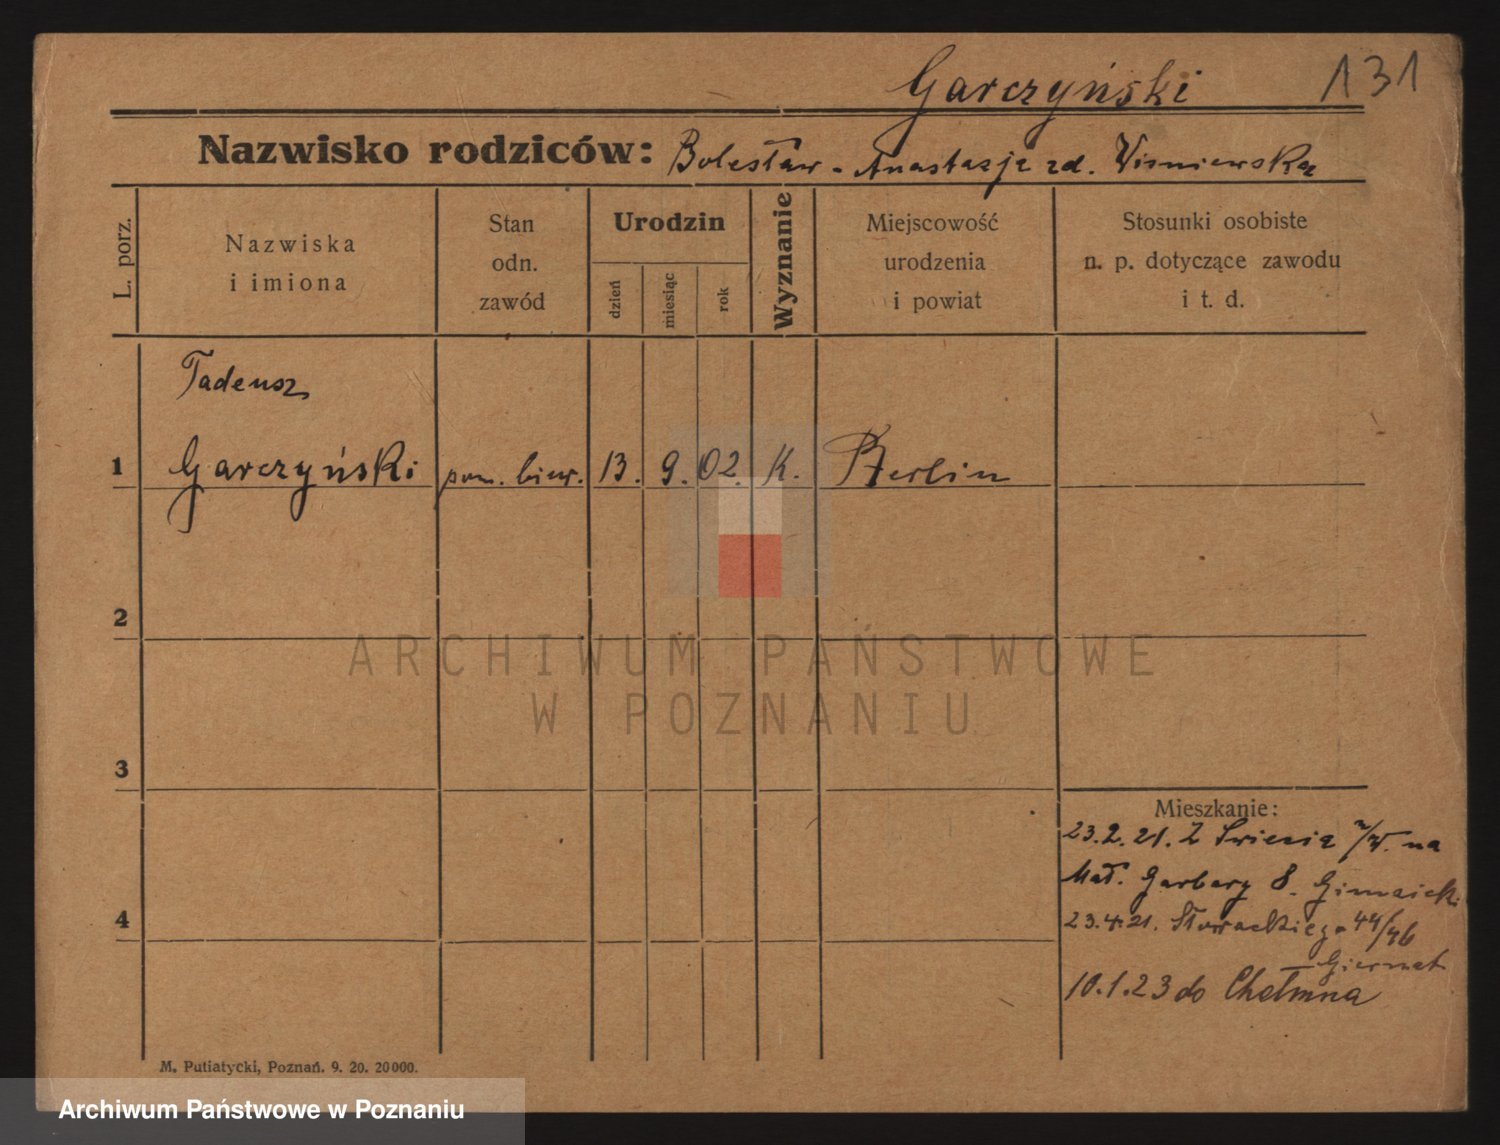 Garczyński 131
Nazwisko rodziców: Bolesław - Anastazja zd. Wiśniewska
L. porz.
Nazwiska
i imiona
Stan
odn.
zawód
Urodzin
dzień
miesiąc
rok
Wyznanie
Miejscowość
urodzenia
i powiat
Stosunki osobiste
n. p. dotyczące zawodu
i t. d.
Tadeusz
1 Garczyński pom. biur. 13. 9. 02. K. Berlin
2
ARCHIWUM PAŃSTWOWE
W POZNANIU
3
Mieszkanie:
23.2.21. Z na
Mał. Garbary 8.
4
23.4.21. Słowackiego 44/46
Giernat
10.1.23 do Chełmna
M. Putiatycki, Poznań. 9. 20. 20000.
Archiwum Państwowe w Poznaniu